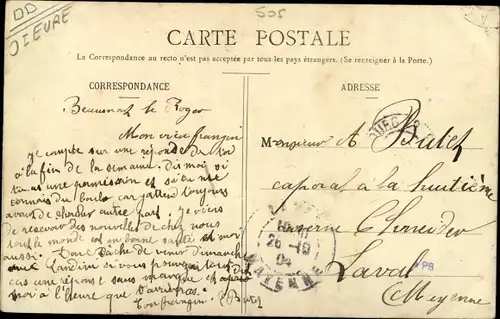 DD
DIEURE
505
CARTE POSTALE
La Correspondance au recto n'est pas acceptée par tous les pays étrangers. (Se renseigner à la Poste.)
CORRESPONDANCE
Beaumont le Roger
Mon vieu frangin
je compte sur une réponse de toi
a la fin de la semaine. dis moi si
tu as une permission et si tu me
connais du boulo car j'attend toujours
avant de chercher autre part. je viens
de recevoir des nouvelles de chez nous
tout le monde est en bonne santé et moi
aussi. tache de venir dimanche
si vous pouvez
une réponse sans manque et
moi a l'heure que tu arriveras.
Ton frangin
ADRESSE
Monsieur A Butet
caporal a la huitième
caserne Chneider
Laval
Mayenne
26 -10
04
MAYENNE